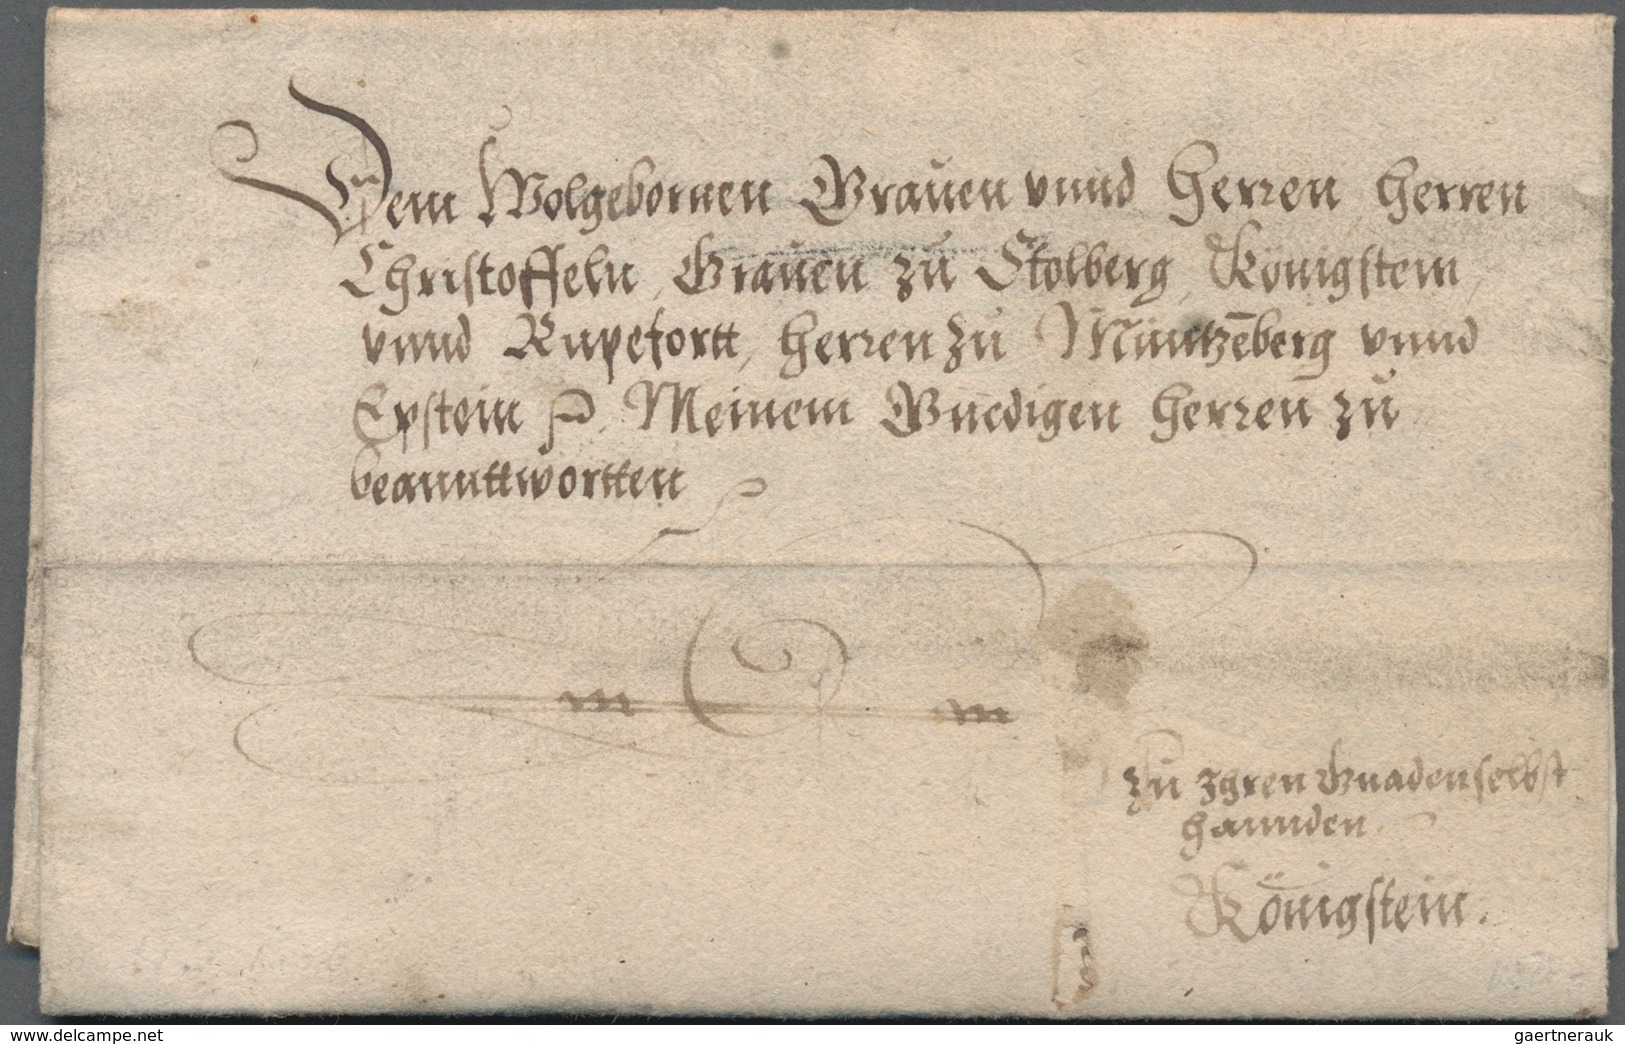 Dem Wolgebornen Grauen vnnd Herren, herren
Christoffeln, Grauen zu Stolberg, Königstein,
vnnd Rupefortt, herren zu Müntzēberg vnnd
Epstein ꝛc. Meinem Gnedigen herren zu
beanntwortten
m m
zu Ihren Gnaden selbst
hannden
Königstein.
www.delcampe.net
gaertnerauk